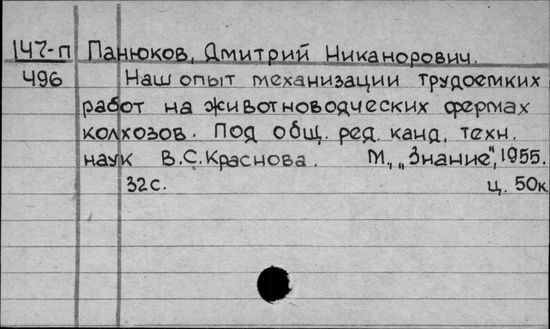 147-п Панюков, Дмитрий Никанорович.
496 Наш опыт механизации трудоемких
работ на животноводческих фермах
колхозов. Под общ. ред. канд. техн.
наук В.С. Краснова. М., „Знание", 1955.
32с. ц. 50к